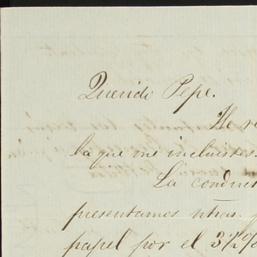 Querido Pepe.
He re
la que me incluistes
La conduc
presentamos ntras.
papel por el 3½%